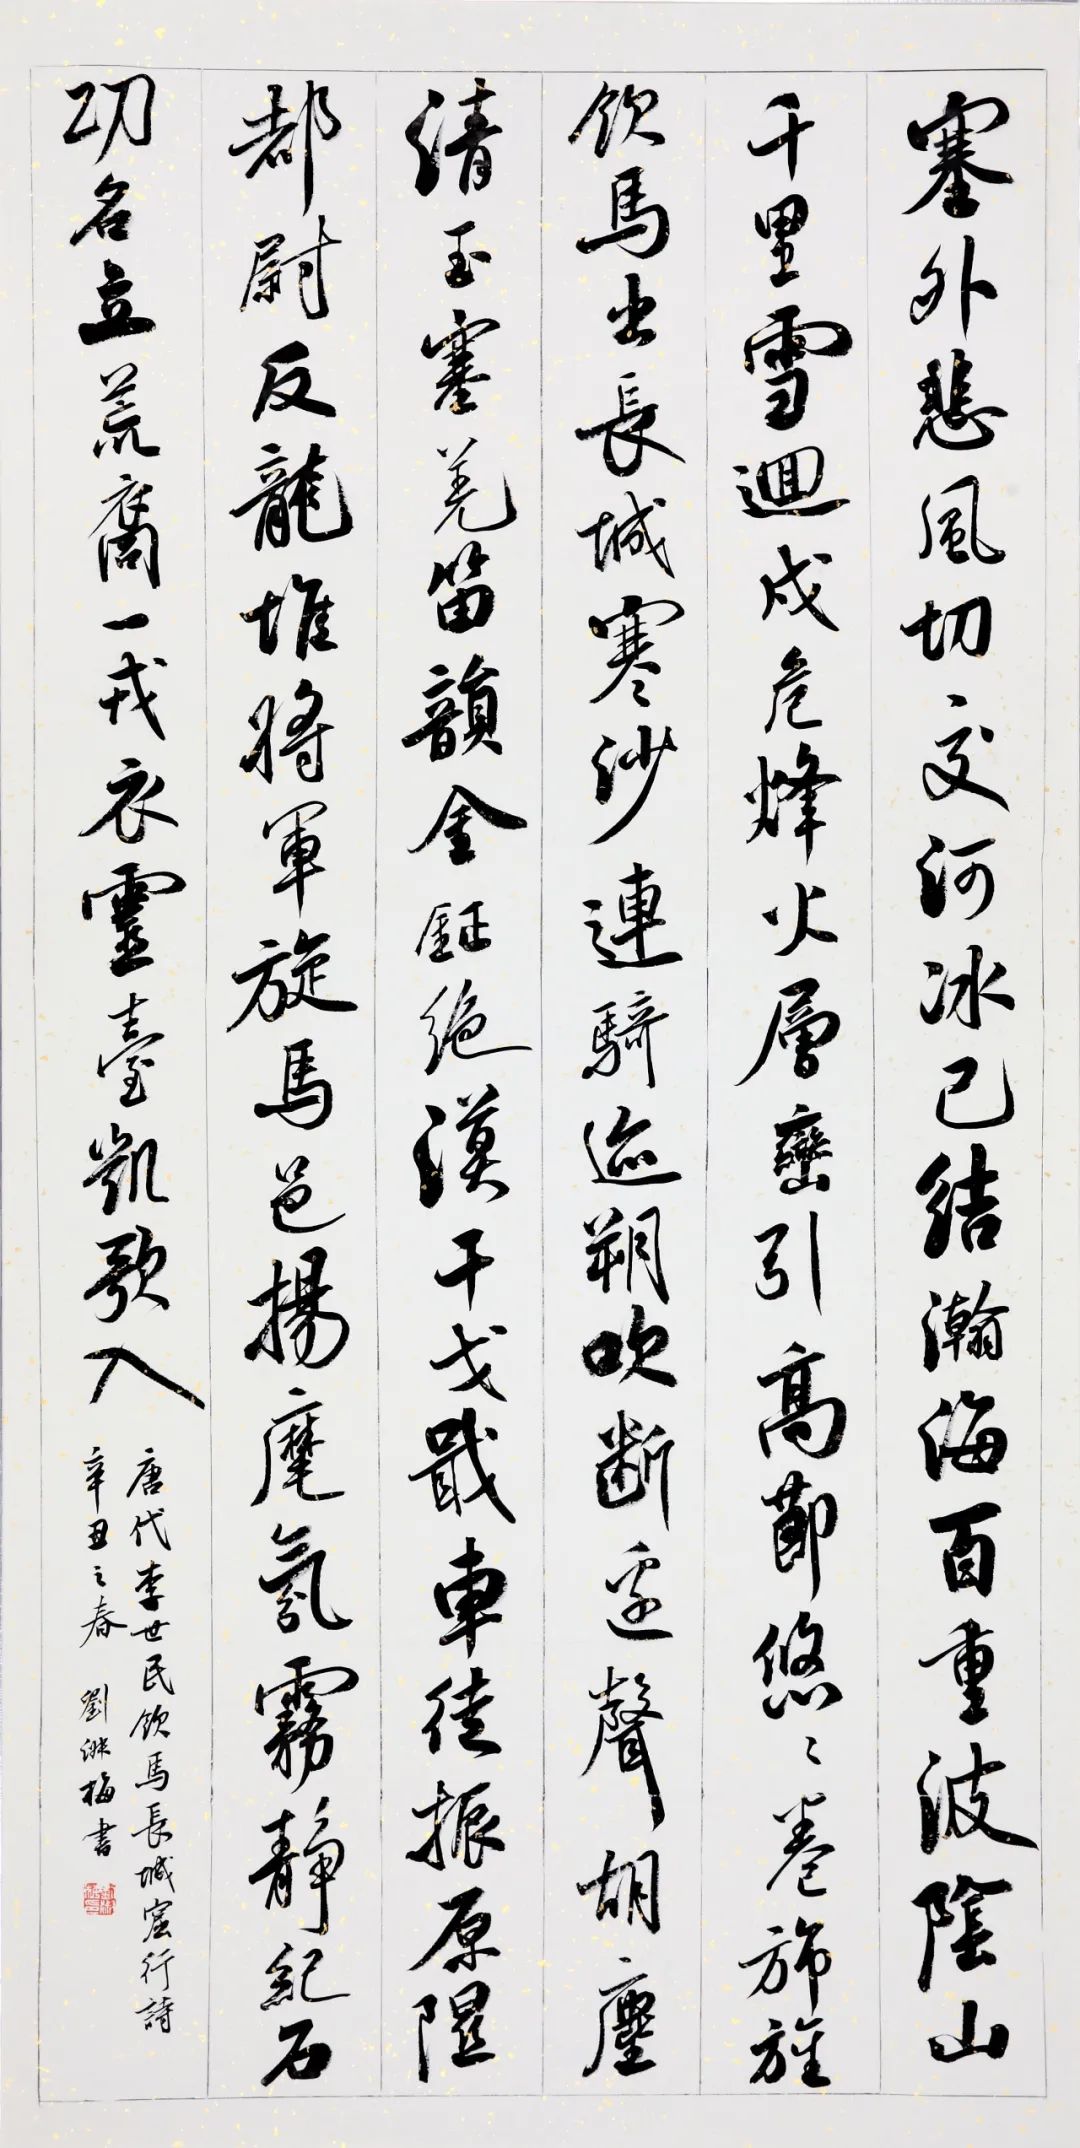 塞外悲風切交河冰已結瀚海百重波陰山
千里雪迴戍危烽火層巒引高節悠々卷旆旌
飲馬出長城寒沙連騎迹朔吹斷邊聲胡塵
清玉塞羌笛韻金鉦絕漠干戈戢車徒振原隰
都尉反龍堆將軍旋馬邑揚麾氛霧靜紀石
功名立荒裔一戎衣靈臺凱歌入
唐代李世民飲馬長城窟行詩
辛丑之春 劉淑梅書